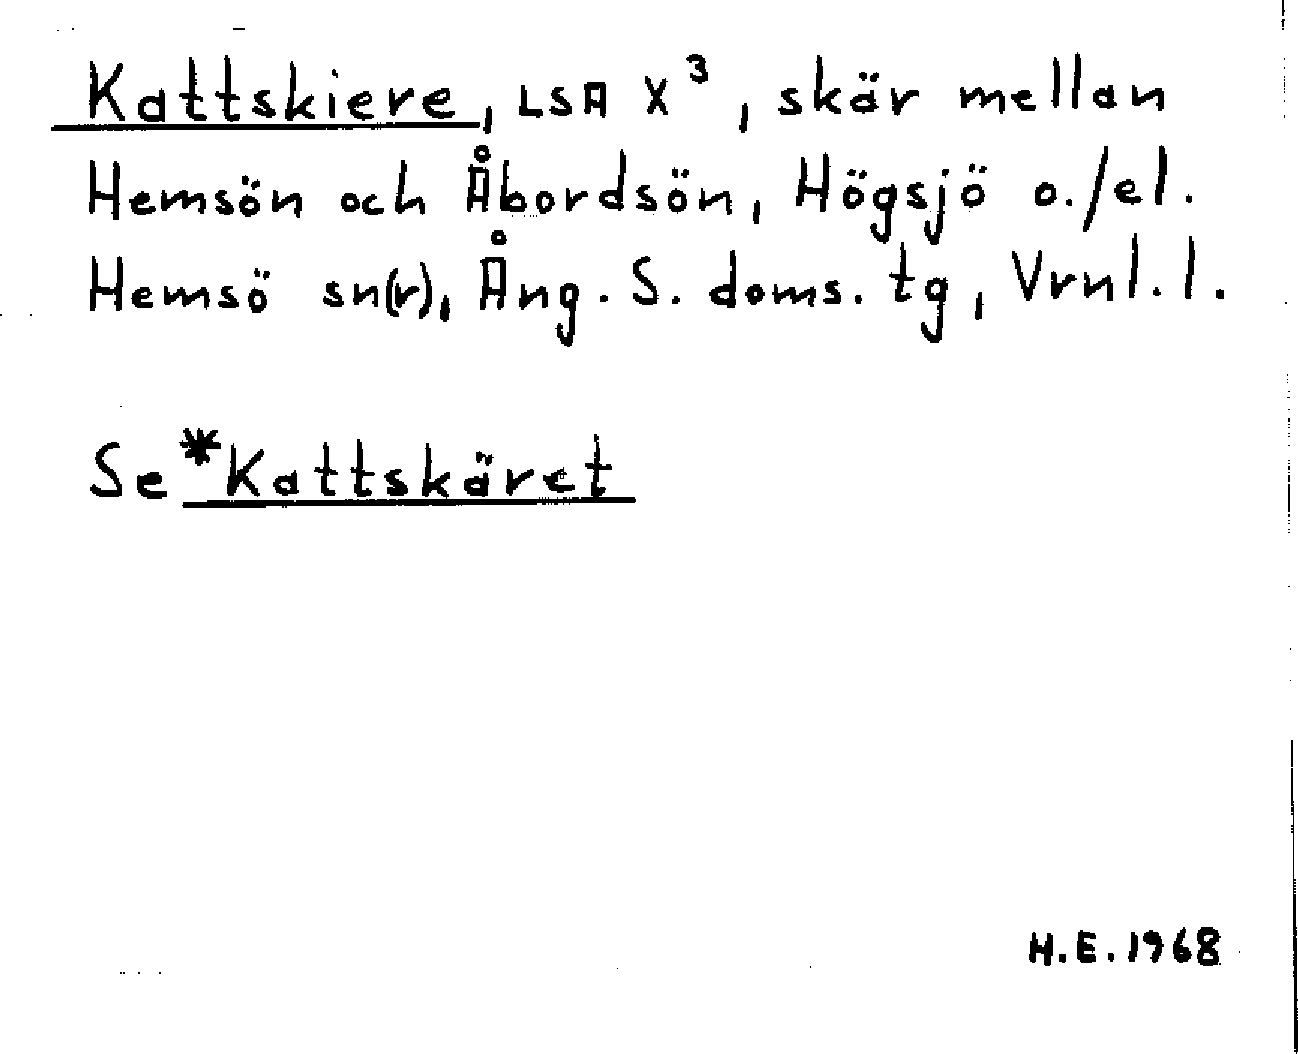 Kattskiere, LSA X³, skär mellan
Hemsön och Åbordsön, Högsjö o./el.
Hemsö sn(r), Ång. S. doms. tg, Vrnl. l.
Se *Kattskäret
H.E. 1968